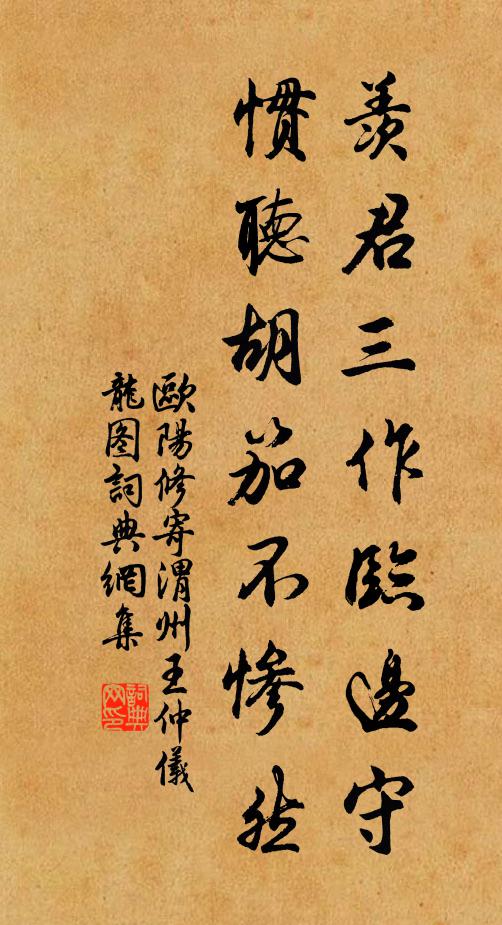 羨君三作臨邊守
慣聽胡笳不慘然
歐陽修寄渭州王仲儀
龍图詞典網集
詞典网印